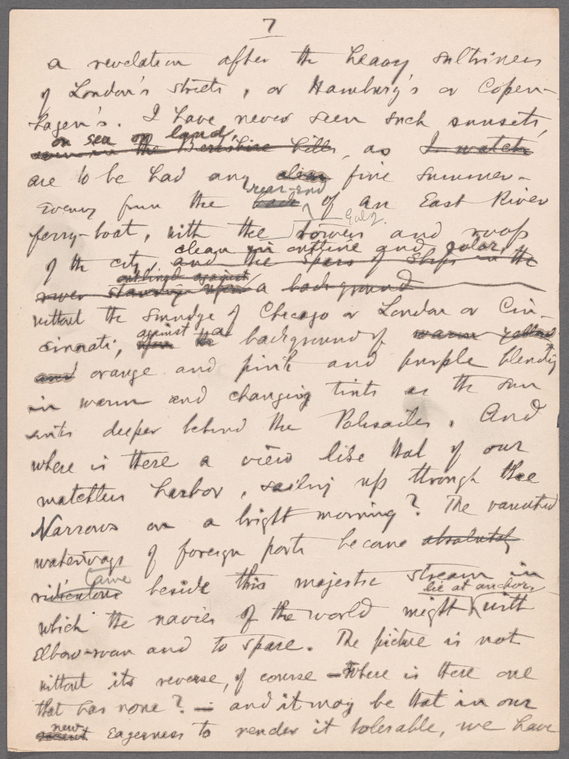 7
a revelation after the heavy sultriness
of London's streets, or Hamburg's or Copen-
hagen's. I have never seen such sunsets,
on sea or land,
the Berkshire hills, as I watch
are to be had any clear fine summer-
rear-end
evening from the back of an East River
ferry-boat, with the towers and roofs
clean in outline and color,
of the city, and the spars of ships in the
outlined against
river standing upon a background
without the smudge of Chicago or London or Cin-
against a
cinnati, upon the background of warm yellow
and orange and pink and purple blending
in warm and changing tints as the sun
sinks deeper behind the Palisades. And
where is there a view like that of our
matchless harbor, sailing up through the
Narrows on a bright morning? The vaunted
waterways of foreign ports become absolutely
tame
ridiculous beside this majestic stream in
lie at anchor
which the navies of the world might with
elbow-room and to spare. The picture is not
without its reverse, of course — where is there one
that has none? — and it may be that in our
new
eagerness to render it tolerable, we have